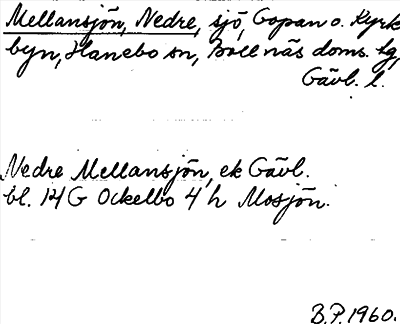 Mellansjön, Nedre, sjö, Gopan o. Kyrk
byn, Hanebo sn, Bollnäs doms. tg,
Gävl. l.
Nedre Mellansjön, ek Gävl.
bl. 14 G Ockelbo 4 h Mosjön.
B.P. 1960.